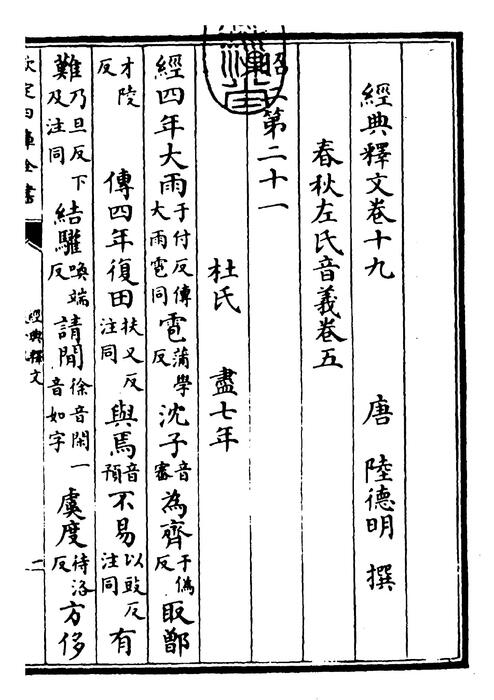 經典釋文卷十九　唐　陸德明　撰
春秋左氏音義卷五
昭二第二十一
杜氏　盡七年
經四年大雨于付反傳大雨雹同雹蒲學反沈子音審為齊于偽反取鄫
才陵反　傳四年復田扶又反注同與焉音預不易以豉反注同有
難乃旦反下及注同結驩喚端反請閒徐音閑一音如字虞度待洛反方侈
欽定四庫全書
經典釋文